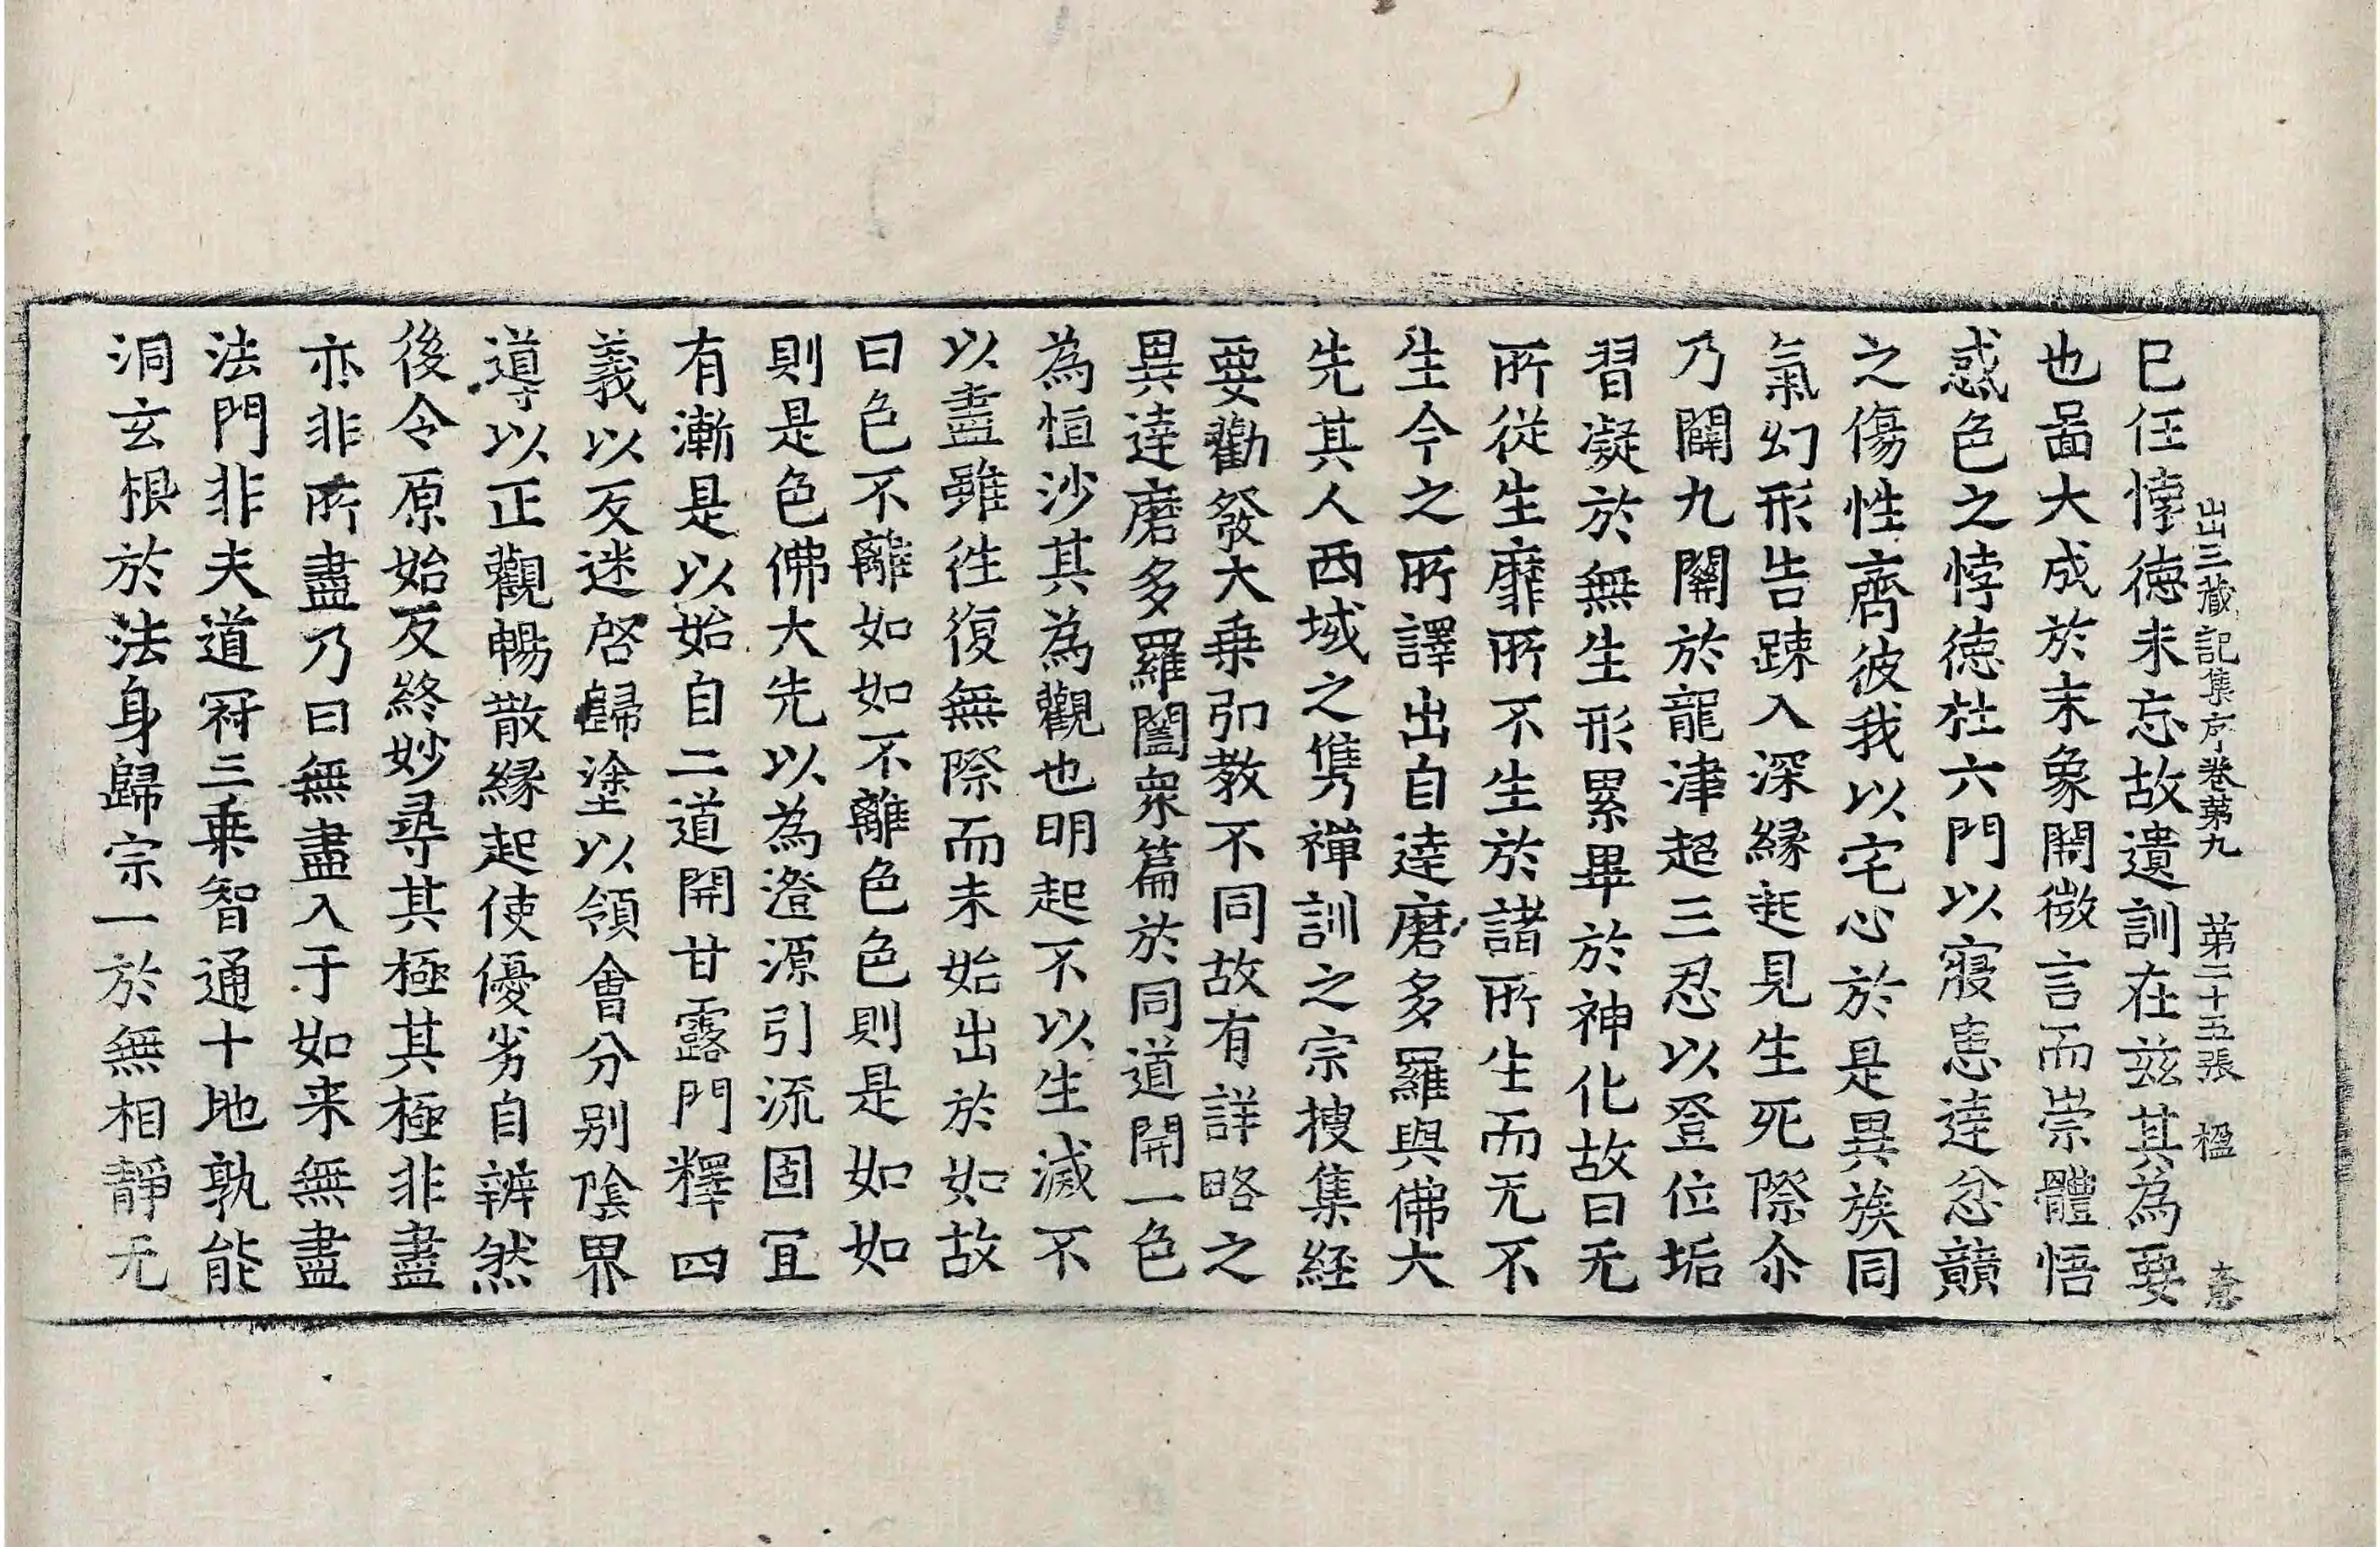 出三藏記集序卷第九 第二十五張 楹
巳任悖徳未忘故遺訓在兹其為要
也啚大成於末象開微言而崇體悟
惑色之悖徳杜六門以寢患達忿䫴
之傷性齊彼我以宅心於是異族同
氣幻形告踈入深緣起見生死際尒
乃闢九關於龍津超三忍以登位垢
習凝於無生形累畢於神化故曰无
所從生靡所不生於諸所生而无不
生今之所譯出自達磨多羅與佛大
先其人西域之雋禪訓之宗捜集経
要勸發大乗引教不同故有詳略之
異達磨多羅闔衆篇於同道開一色
為恒沙其為觀也明起不以生滅不
以盡雖徃復無際而未始出於如故
曰色不離如如不離色色則是如如
則是色佛大先以為澄源引流固冝
有漸是以始自二道開甘露門釋四
義以反迷啓歸塗以領會分别陰界
導以正觀暢散緣起使優劣自辨然
後令原始反終妙尋其極其極非盡
亦非所盡乃曰無盡入于如来無盡
法門非夫道冠三乗智通十地孰能
洞玄根於法身歸宗一於無相靜无